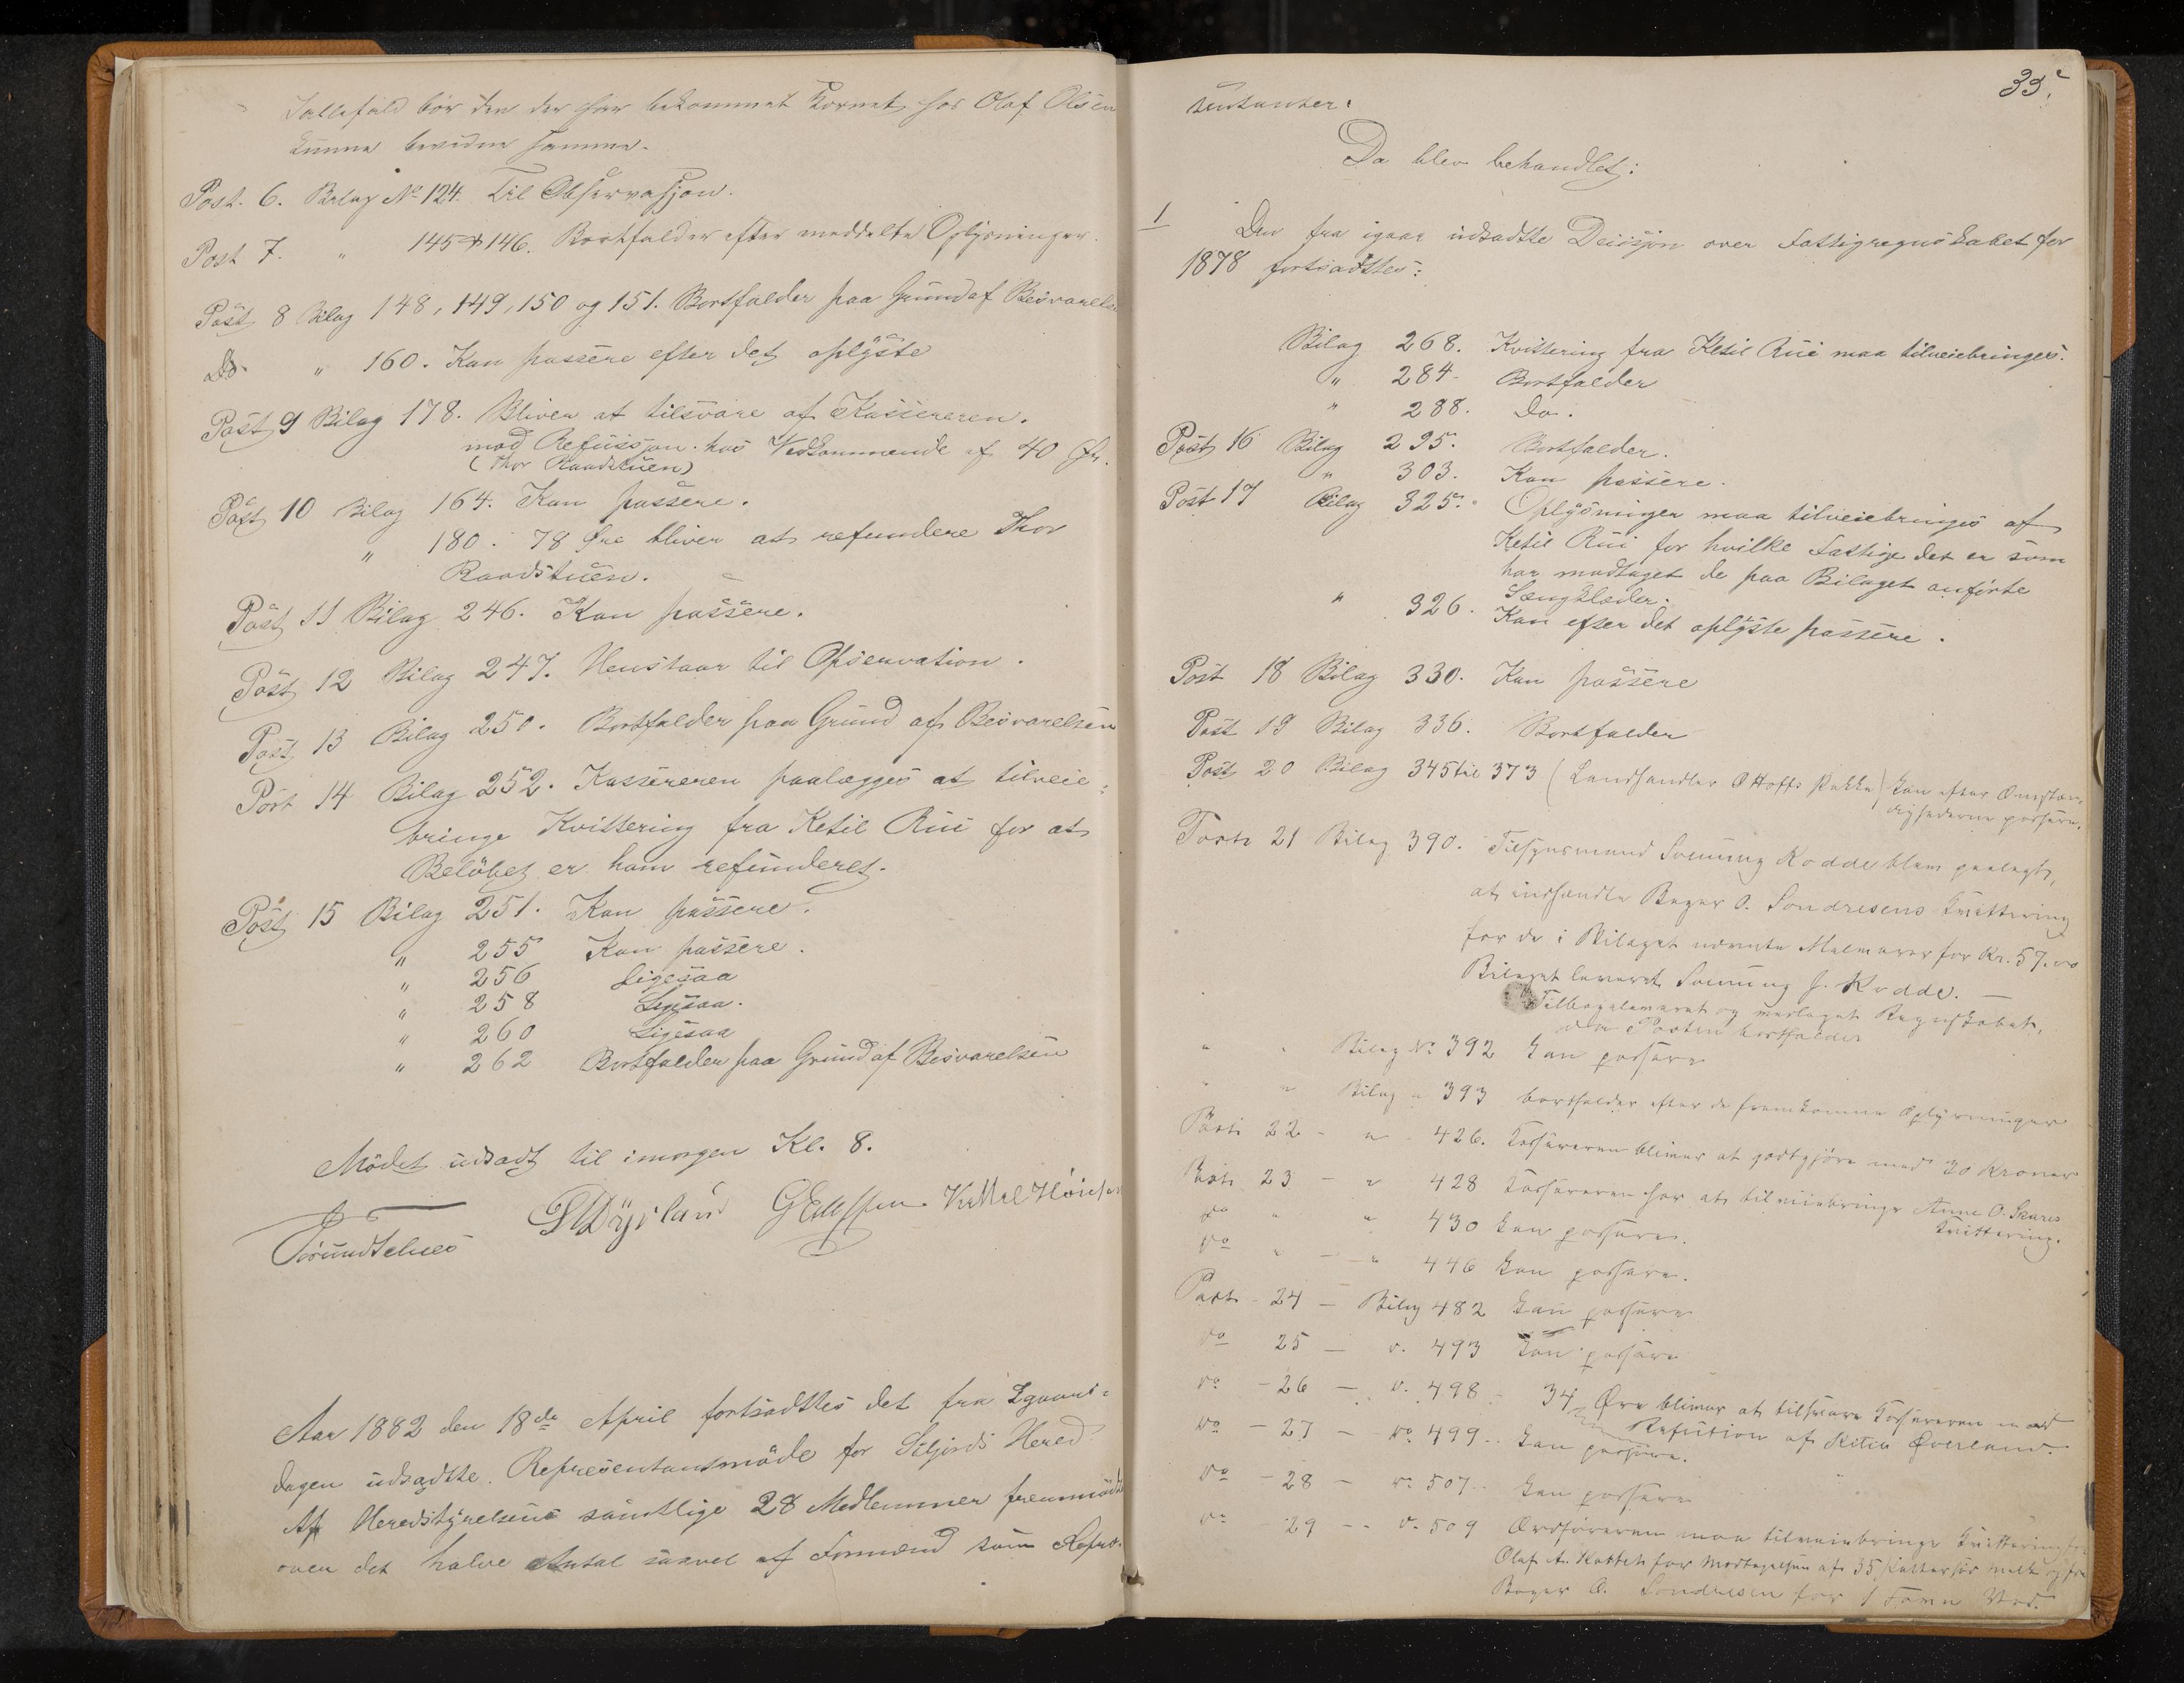 Tallefald bör den der har bekommet Kornet hos Olaf Olsen
kunne bevidne samme.
Post. 6. Bilag No 124. Til Observasjon.
Post 7. " 145 & 146. Bortfalder efter meddelte Oplysninger.
Post 8 Bilag 148, 149, 150 og 151. Bortfalder paa Grund af Besvarelse
Do " 160. Kan passere efter det oplyste
Post 9 Bilag 178. Bliver at tilsvare af Kassereren.
mod Refusjon hos Vedkommende af 40 Øre.
(Thor Raadstuen)
Post 10 Bilag 164. Kan passere.
" 180. 78 Øre bliver at refundere Thor
Raadstuen.
Post 11 Bilag 246. Kan passere.
Post 12 Bilag 247. Henstaar til Opservation.
Post 13 Bilag 250. Bortfalder paa Grund af Besvarelsen
Post 14 Bilag 252. Kassereren paalægges at tilveie-
bringe Kvittering fra Ketil Rui for at
Belöbet er ham refunderet.
Post 15 Bilag 251. Kan passere.
" 255 Kan passere.
" 256 Ligesaa
" 258 Ligesaa.
" 260 Ligesaa
" 262 Bortfalder paa Grund af Besvarelsen
Mödet udsadt til imorgen Kl. 8.
Aar 1882 den 18de April fortsadttes det fra Igaars-
dagen udsadtte Representantmöde for Siljords Hered
Af Heredstyrelsens samtlige 28 Medlemmer fremmödte
over det halve Antal saavel af Formænd som Repre-
33.
sentanter.
Da blev behandlet:
1 Den fra igaar udsadtte Deisjon over Fattigregnskabet for
1878 fortsadttes:
Bilag 268. Kvittering fra Ketil Rui maa tilveiebringes.
" 284. Bortfalder
" 288. Do.
Post 16 Bilag 295. Bortfalder.
" 303. Kan passere.
Post 17 Bilag 325. Oplysninger maa tilveiebringes af
Ketil Rui for hvilke Fattige det er som
har modtaget de paa Bilaget anförte
Sængklæder.
" 326. Kan efter det oplyste passere.
Post 18 Bilag 330. Kan passere
Post 19 Bilag 336. Bortfalder
Post 20 Bilag 345 til 373 (Landhandler O Hoffs Pakke) kan efter Omstæn-
dighederne passere.
Post 21 Bilag 390. Tilsynsmand Sveinung Kodde blev paalagt,
at indhændte Bager O. Sondresens Kvittering
for de i Bilaget nævnte Melvarer for Kr. 57.00
Bilaget leveret Sveinung J. Kodde. —
Tilbageleveret og vedlaget Regnskabet,
Posten bortfalder
" " Bilag No 392 kan passere
" " Bilag " 393 bortfalder efter de fremkomne Oplysninger
Post 22 - " - 426. Kassereren bliver at godtgjöre med 30 Kroner
Post 23 - " 428 Kassereren har at tilveiebringe Anne O. Skares
Kvittering.
do " " 430 kan passere.
do " - " 446 kan passere.
Post - 24 - Bilag 482 kan passere
do 25 - " 493 kan passere
do - 26 - " 498 - 34 Øre bliver at tilsvare Kassereren mod
Refusion af Kitil Øverland.
do - 27 - do 499. kan passere.
do - 28 - do 507. kan passere
do 29 - " 509 Ordföreren maa tilveiebringe Kvittering fra
Olaf A. Kattet for Modtagelsen af 35 Potter sös Melk og fra
Bager O. Sondresen for 1 Favn Ved.